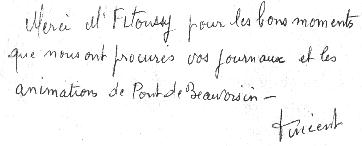 Merci Mr Fitoussy pour les bons moments
que nous ont procurés vos journaux et les
animations de Pont de Beauvoisin -
Vincent